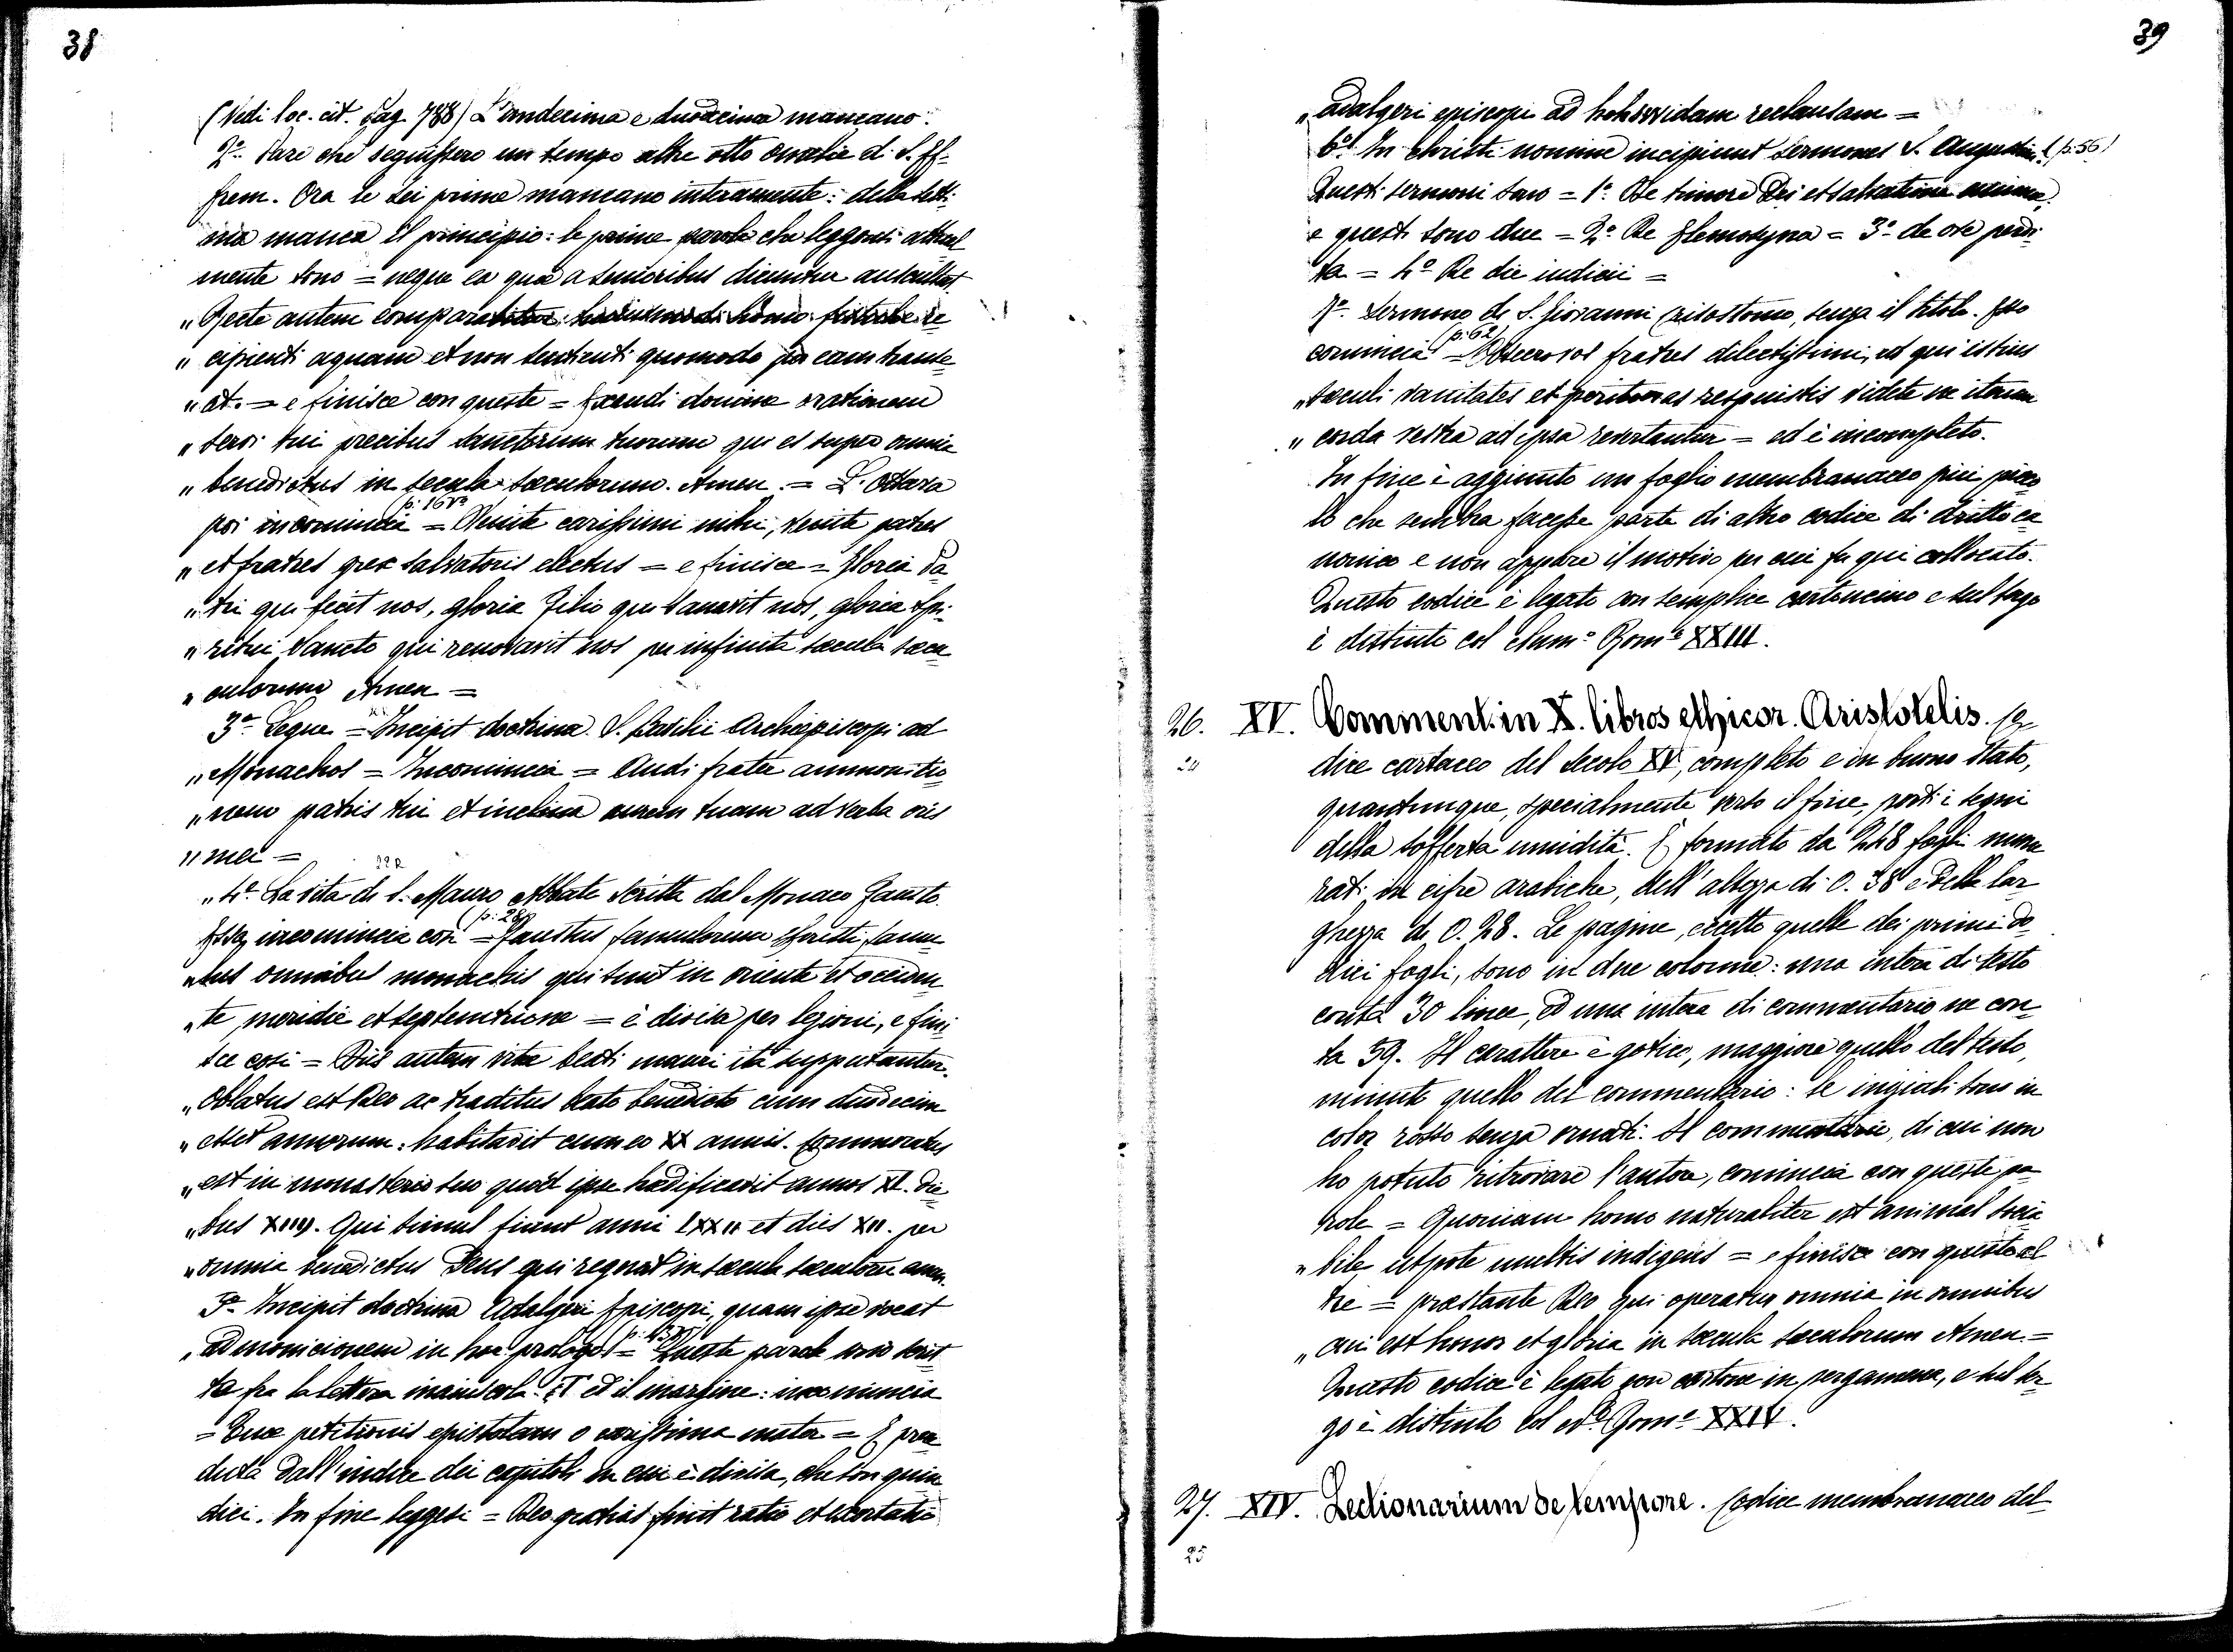 38
(Vedi loc. cit. pag. 788) L'undecima e duodecima mancano.
2º Pare che seguissero un tempo altre otto omelie di S. Ef-
frem. Ora le sei prime mancano interamente: della setti-
ma manca il principio: le prime parole che leggonsi attual
mente sono = neque ea quæ a senioribus dicuntur auscultat.
„ Recte autem comparabitur huiusmodi homo fistulæ re
„ cipienti aquam et non sentienti quomodo per eam transe
„ at. = e finisce con queste = Exaudi domine orationem
„ servi tui precibus sanctorum tuorum qui es super omnia
„ benedictus in secula sæculorum. Amen. = L'ottava
p: 16 vº
poi incomincia = Venite carissimi mihi, venite patres
„ et fratres grex salvatoris electus = e finisce = Gloria Pa
„ tri qui fecit nos, gloria Filio qui sanavit nos, gloria Spi-
„ ritui Sancto qui renovavit nos per infinita sæcula sæcu
„ culorum Amen =
3º Segue = Incipit doctrina S. Basilii Archiepiscopi ad
„ Monachos = Incomincia = Audi frater ammonitio
„ nem patris tui et inclina aurem tuam ad verba oris
„ mei =
22 R
„ 4º La vita di S. Mauro Abbate scritta dal Monaco Fausto.
(p: 28)
Essa incomincia così = Faustus famulorum Christi famu
„ lus omnibus monachis qui sunt in oriente et occiden
„ te, meridie et septemtrione = è divisa per lezioni, e fini
sce così = Dies autem vitæ beati mauri ita supputantur.
„ Oblatus est Deo ac traditus beato benedicto cum duodecim
„ esset annorum: habitavit cum eo XX annis. Commoratus
„ est in monasterio suo quod ipse hædificavit annos XL. die
„ bus XIIIJ. Qui simul fiunt anni LXXII et dies XII. per
„ omnia benedictus Deus qui regnat in sæcula sæculorum amen.
5º Incipit doctrina Adalgeri Episcopi, quam ipse vocat
„ admonicionem in hoc prologo = Queste parole sono scrit
te fra la lettera maiuscola ed il margine: incomincia
= Tuæ petitionis epistolam o carissima mater = È prece
duta dall'indice dei capitoli in cui è divisa, che son quin
dici. In fine leggesi = Deo gratias finit ratio et exortatio
39
„ adalgeri episcopi ad reclausam =
6º In christi nomine incipiunt sermones S. Augustini (p: 56)
Questi sermoni sono = 1º De timore Dei et salvatione animæ,
e questi sono due = 2º De Elemosyna = 3º de ose perdi
ta = 4º De die iudicii =
7º Sermone di S. Giovanni Crisostomo, senza il titolo. Esso
(p: 62)
comincia = Obsecro vos fratres dilectissimi, et qui istius
„ sæculi vanitates et perituras respuistis videte ne iterum
„ corda vestra ad ipsa revertantur = ed è incompleto.
In fine è aggiunto un foglio membranaceo più picco
lo che sembra facesse parte di altro codice di dritto ca
nonico e non appare il motivo per cui fu qui collocato.
Questo codice è legato con semplice cartoncino e sul tergo
è distinto col Numº Romº XXIII.
26. XV. Comment. in X. libros ethicor. Aristotelis. Co
24
dice cartaceo del secolo XV, completo e in buono stato,
quantunque, specialmente verso il fine, porti i segni
della sofferta umidità. È formato da 248 fogli nume
rati in cifre arabiche, dell'altezza di 0. 38 e della lar
ghezza di 0. 28. Le pagine, eccetto quelle dei primi do
dici fogli, sono in due colonne: una intera di testo
conta 30 linee, ed una intera di commentario ne con
ta 59. Il carattere è gotico, maggiore quello del testo,
minuto quello del commentario: le iniziali sono in
color rosso senza ornati. Il commentario, di cui non
ho potuto ritrovare l'autore, comincia con queste pa
role = Quoniam homo naturaliter est animal socia
„ bile, utpote multis indigens = e finisce con queste al
tre = præstante Deo qui operatur omnia in omnibus
„ cui est honor et gloria in sæcula sæculorum Amen. =
Questo codice è legato con cartone in pergamena, e sul ter
go è distinto col Nº Romº XXIV.
27. XIV. Lectionarium de tempore. Codice membranaceo del
25